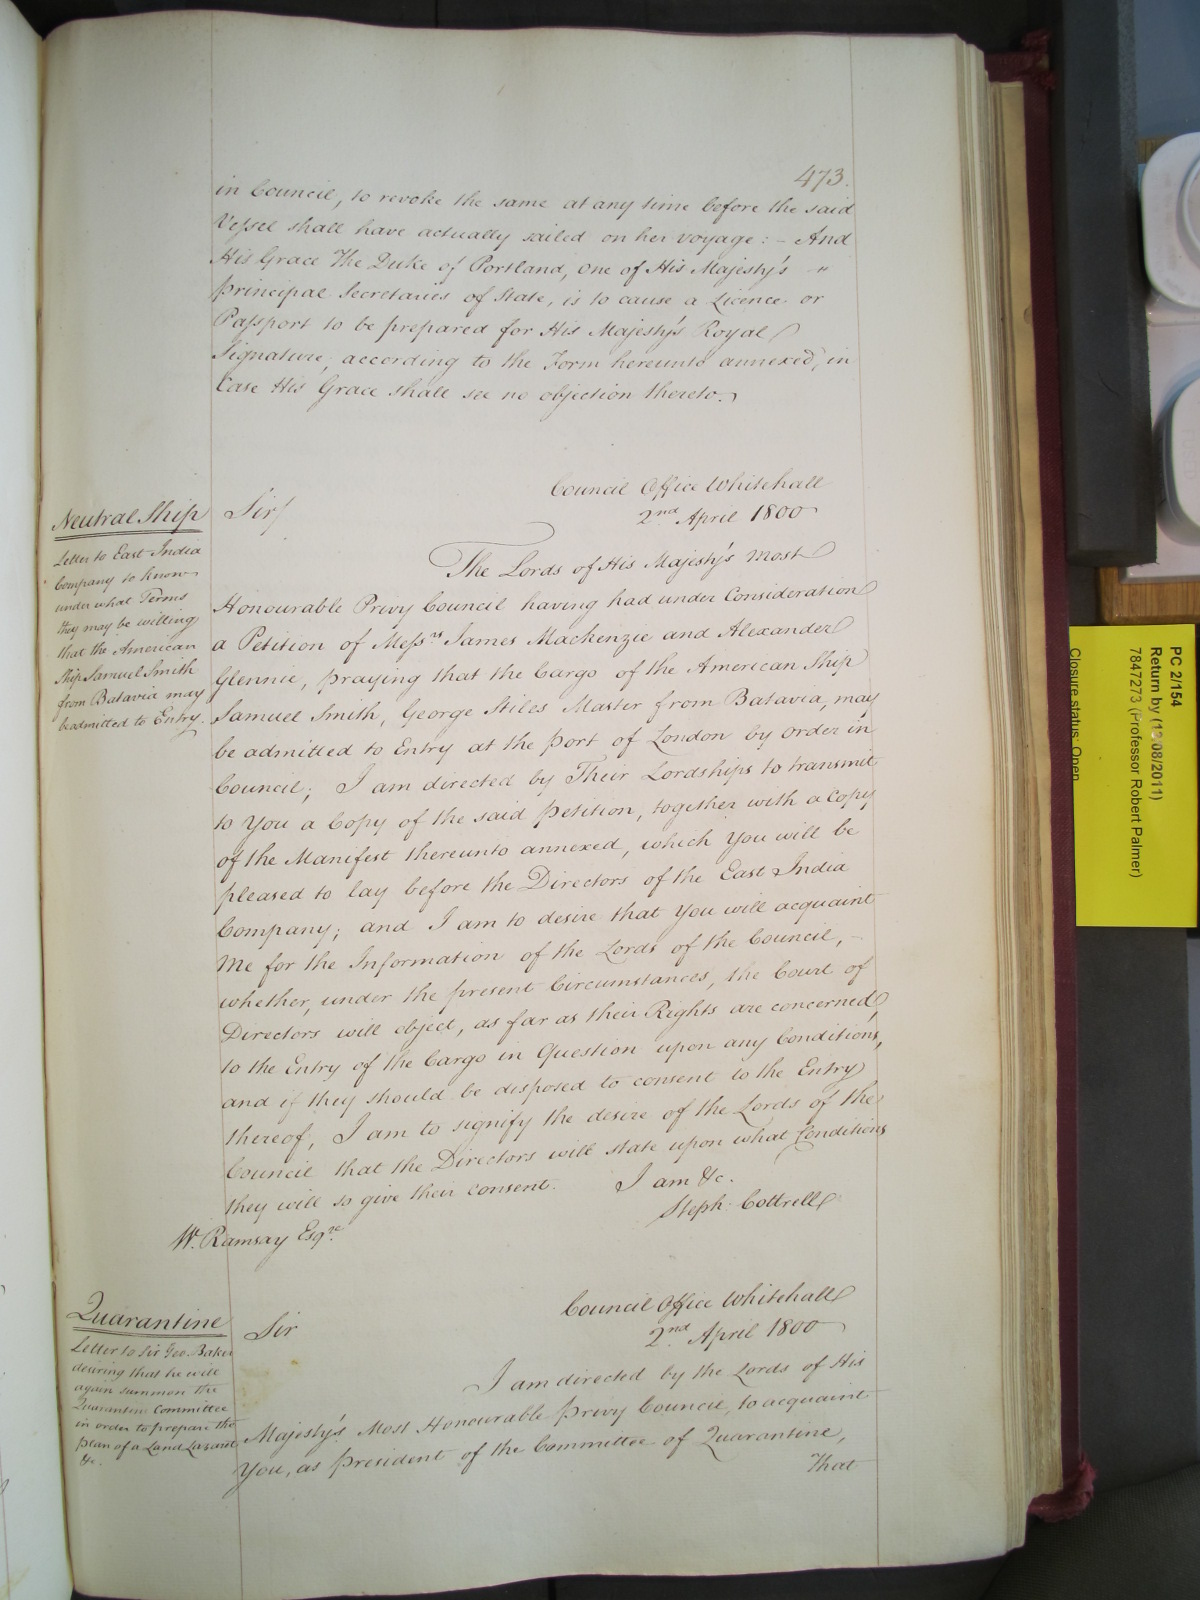 473.
in Council, to revoke the same at any time before the said
Vessel shall have actually sailed on her voyage : – And
His Grace The Duke of Portland, one of His Majesty's "
Principal Secretaries of State, is to cause a Licence or
Passport to be prepared for His Majesty's Royal
Signature, according to the Form hereunto annexed, in
Case His Grace shall see no objection thereto.
Council Office Whitehall
2nd April 1800
Neutral Ship
Letter to East India
Company to know
under what Terms
they may be willing
that the American
Ship Samuel Smith
from Batavia may
be admitted to Entry.
Sir/
The Lords of His Majesty's Most
Honourable Privy Council having had under Consideration
a Petition of Messrs James Mackenzie and Alexander
Glennie, praying that the Cargo of the American Ship
Samuel Smith, George Stiles Master from Batavia, may
be admitted to Entry at the Port of London by Order in
Council; I am directed by Their Lordships to transmit
to You a Copy of the said Petition, together with a Copy
of the Manifest thereunto annexed, which You will be
pleased to lay before the Directors of the East India
Company; and I am to desire that You will acquaint
Me for the Information of the Lords of the Council, –
whether, under the present Circumstances, the Court of
Directors will object, as far as their Rights are concerned,
to the Entry of the Cargo in Question upon any Conditions,
and if they should be disposed to consent to the Entry
thereof, I am to signify the desire of the Lords of the
Council that the Directors will state upon what Conditions
they will so give their Consent. I am &c.
Steph. Cottrell
W. Ramsay Esqre
Council Office Whitehall
2nd April 1800
Quarantine
Letter to Sir Geo. Baker
desiring that he will
again summon the
Quarantine Committee
in order to prepare the
plan of a Land Lazaret
&c.
Sir
I am directed by the Lords of His
Majesty's Most Honourable Privy Council, to acquaint
You, as President of the Committee of Quarantine,
That
PC 2/154
Return by (1 08/2011)
7847273 (Professor Robert Palmer)
Closure status: Open